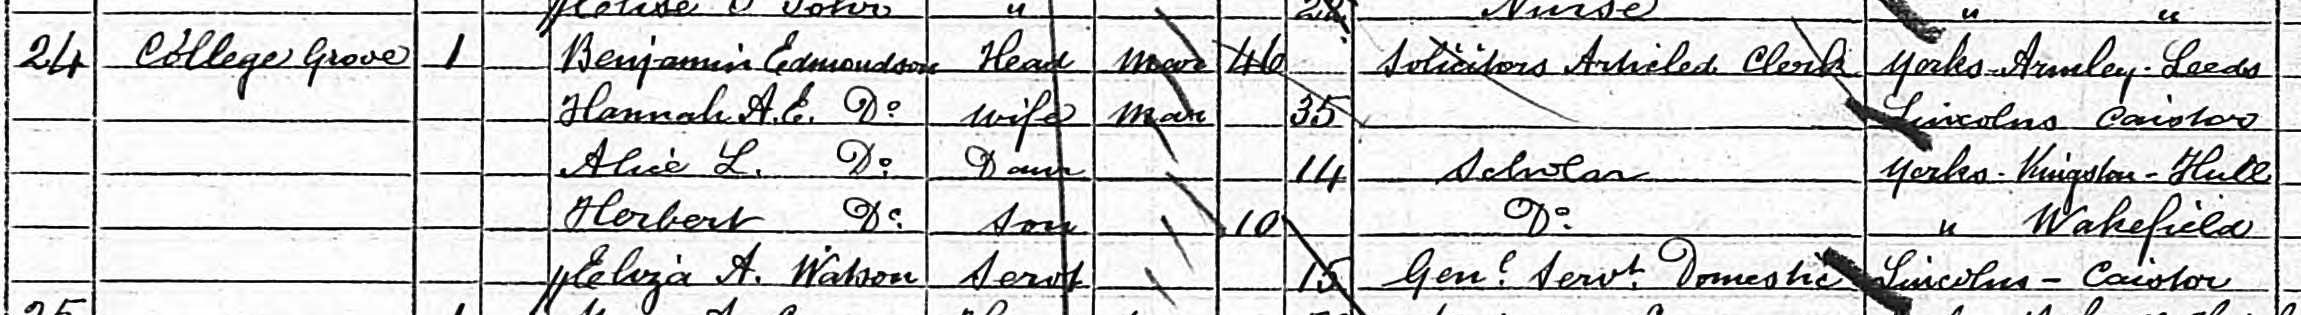 Nurse " "
24 College Grove 1 Benjamin Edmondson Head Mar 46 Solicitors Articled Clerk Yorks - Armley - Leeds
Hannah A.E. Do. Wife Mar 35 Lincolns Caistor
Alice L. Do. Daur 14 Scholar Yorks - Kingston - Hull
Herbert Do. Son 10 Do. " Wakefield
Eliza A. Watson Servt 15 Genl. Servt. Domestic Lincolns - Caistor
25 1